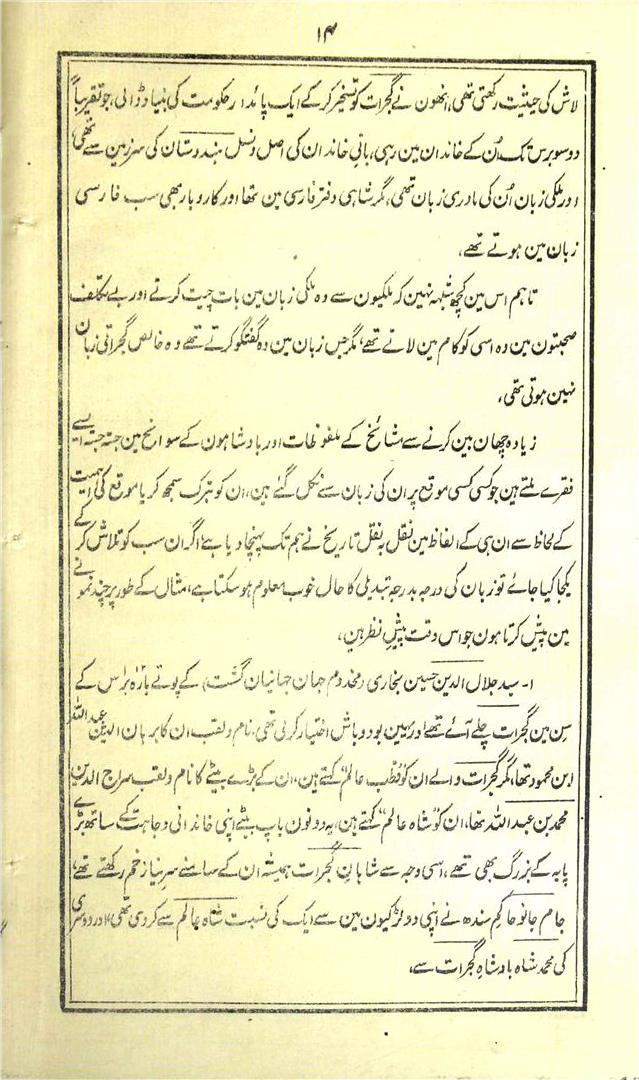 ۱۴
لاش کی حیثیت رکھتی تھی، انھون نے گجرات کو تسخیر کرکے ایک پائدار حکومت کی بنیاد ڈالی، جو تقریباً
دوسو برس تک اُن کے خاندان مین رہی، بانیِ خاندان کی اصل ونسل ہندوستان کی سرزمین سے تھی،
اور ملکی زبان اُن کی مادری زبان تھی، مگر شاہی دفتر فارسی مین تھا اور کاروبار بھی سب فارسی
زبان مین ہوتے تھے،
تاہم اس مین کچھ شبہہ نہین کہ ملکیون سے وہ ملکی زبان مین بات چیت کرتے اور بے تکلف
صحبتون مین وہ اسی کو کام مین لاتے تھے، مگر جس زبان مین وہ گفتگو کرتے تھے وہ خالص گجراتی زبان
نہین ہوتی تھی،
زیادہ چھان بین کرنے سے مشائخ کے ملفوظات اور بادشاہون کے سوانح مین جستہ جستہ ایسے
فقرے ملتے ہین جو کسی کسی موقع پر ان کی زبان سے نکل گئے ہین، ان کو تبرک سمجھ کر یا موقع کی اہمیت
کے لحاظ سے ان ہی کے الفاظ مین نقل بہ نقل تاریخ نے ہم تک پہنچا دیا ہے، اگر ان سب کو تلاش کرکے
یکجا کیا جائے تو زبان کی درجہ بدرجہ تبدیلی کا حال خوب معلوم ہوسکتا ہے، مثال کے طور پر چند نمونے
مین پیش کرتا ہون جو اس وقت پیشِ نظر ہین،
۱- سید جلال الدین حسین بخاری (مخدوم جہان جہانیان گشت) کے پوتے بارہ برس کے
سِن مین گجرات چلے آئے تھے اور یہین بود و باش اختیار کرلی تھی، نام ولقب ان کا برہان الدین عبداللہ
ابن محمود تھا، مگر گجرات والے ان کو قطب عالم کہتے ہین، ان کے بڑے بیٹے کا نام ولقب سراج الدین
محمد بن عبداللہ تھا، ان کو شاہ عالم کہتے ہین، یہ دونون باپ بیٹے اپنی خاندانی وجاہت کے ساتھ بڑے
پایہ کے بزرگ بھی تھے، اسی وجہ سے شاہانِ گجرات ہمیشہ ان کے سامنے سرِ نیاز خم رکھتے تھے،
جام جانو حاکم سندھ نے اپنی دو لڑکیون مین سے ایک کی نسبت شاہ عالم سے کردی تھی، اور دوسری
کی محمد شاہ بادشاہِ گجرات سے،